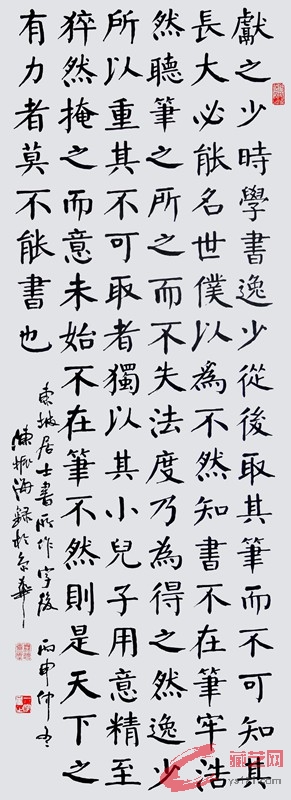 獻之少時學書逸少從後取其筆而不可知其
長大必能名世僕以為不然知書不在筆牢浩
然聽筆之所之而不失法度乃為得之然逸少
所以重其不可取者獨以其小兒子用意精至
猝然掩之而意未始不在筆不然則是天下之
有力者莫不能書也
東坡居士書所作字後 丙申仲冬
陳振海錄於京華